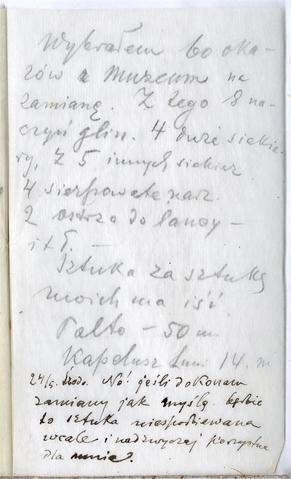 Wybrałem 60 oka-
zów z muzeum na
zamianę. Z tego 8 na-
czyń glin. 4 duże siekie-
ry, z 5 innych siekier
4 sierpowate narz.
2 ostrza do lancy –
i t d. –
Sztuka za sztukę
moich ma iść.
Palto – 50 m.
Kapelusz 14. m
24/5. Środa. No! jeśli dokonam
zamiany jak myślę będzie
to sztuka niespodziewana
wcale i nadzwyczaj korzystna
dla mnie.